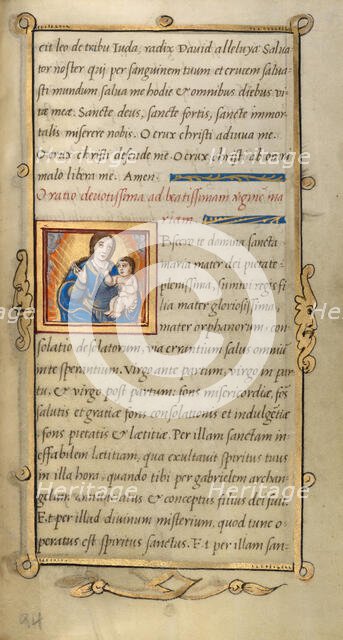 cit leo de tribu Iuda, radix Dauid alleluya Salua
tor noster qui per sanguinem tuum et crucem salua-
sti mundum salua me hodie & omnibus diebus vi-
tæ meæ. Sancte deus, sancte fortis, sancte immor-
talis miserere nobis. O crux christi adiuua me.
O crux christi defende me. O crux christi ab omni
malo libera me. Amen.
Oratio deuotissima, ad beatissimam virginē ma
riam.
secro te domina sancta
maria mater dei pietate
plenissima, summi regis fi-
lia mater gloriosissima,
mater orphanorum, con-
solatio desolatorum, via errantium salus omniū
in te sperantium. Virgo ante partum, virgo in par
tu, & virgo post partum: fons misericordiæ, fōs
salutis et gratiæ fons consolationis et indulgētiæ
fons pietatis & lætitiæ. Per illam sanctam in-
effabilem lætitiam, qua exultauit spiritus tuus
in illa hora, quando tibi per gabrielem archan-
gelum annunciatus & conceptus filius dei fuit.
Et per illud diuinum misterium, quod tunc o-
peratus est spiritus sanctus. Et per illam san-
94
Heritage
Heritage
Heritage
Heritage